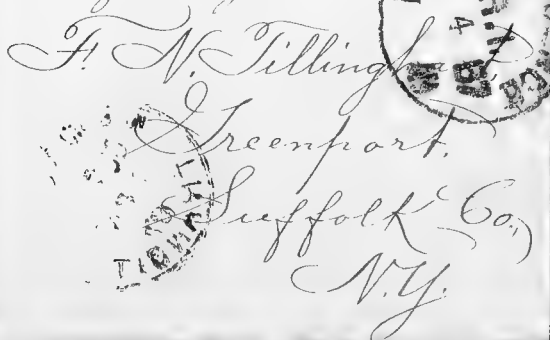 F. N. Tillinghast,
Greenport,
Suffolk Co.,
N.Y.